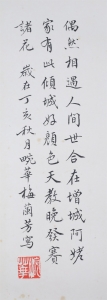 偶然相遇人間世合在增城阿姥
家有此傾城好顏色天教晚發賽
諸花 歲在丁亥秋月畹華梅蘭芳寫